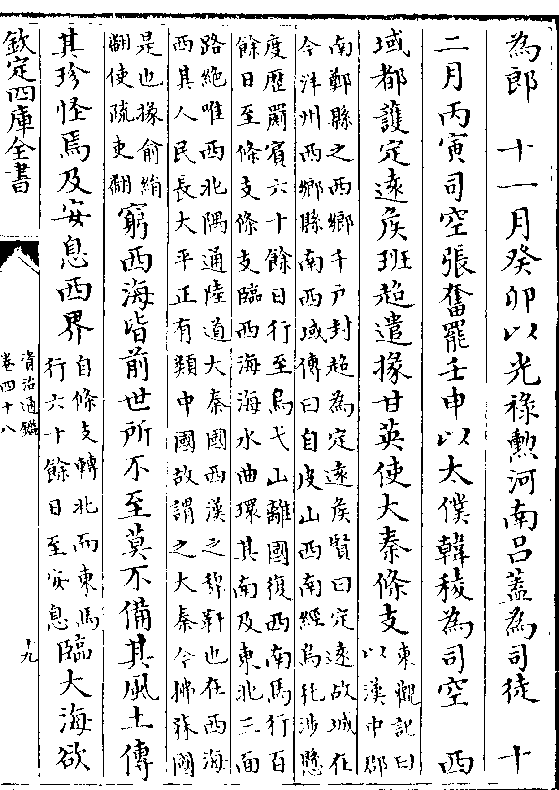 為郎　十一月癸卯以光祿勲河南吕蓋為司徒　十
二月丙寅司空張奮罷壬申以太僕韓稜為司空　西
域都護定遠侯班超遣掾甘英使大秦條支
東觀記曰
以漢中郡
南鄭縣之西鄉千戶封超為定遠侯賢曰定遠故城在
今洋州西鄉縣南西域傳曰自皮山西南經烏秅涉懸
度歷罽賓六十餘日行至烏弋山離國復西南馬行百
餘日至條支條支臨西海海水曲環其南及東北三面
路絶唯西北隅通陸道大秦國西漢之犂靬也在西海
西其人民長大平正有類中國故謂之大秦今拂菻國
是也掾俞絹
翻使疏吏翻
窮西海皆前世所不至莫不備其風土傳
其珍怪焉及安息西界
自條支轉北而東馬
行六十餘日至安息
臨大海欲
欽定四庫全書
資治通鑑
卷四十八
十九